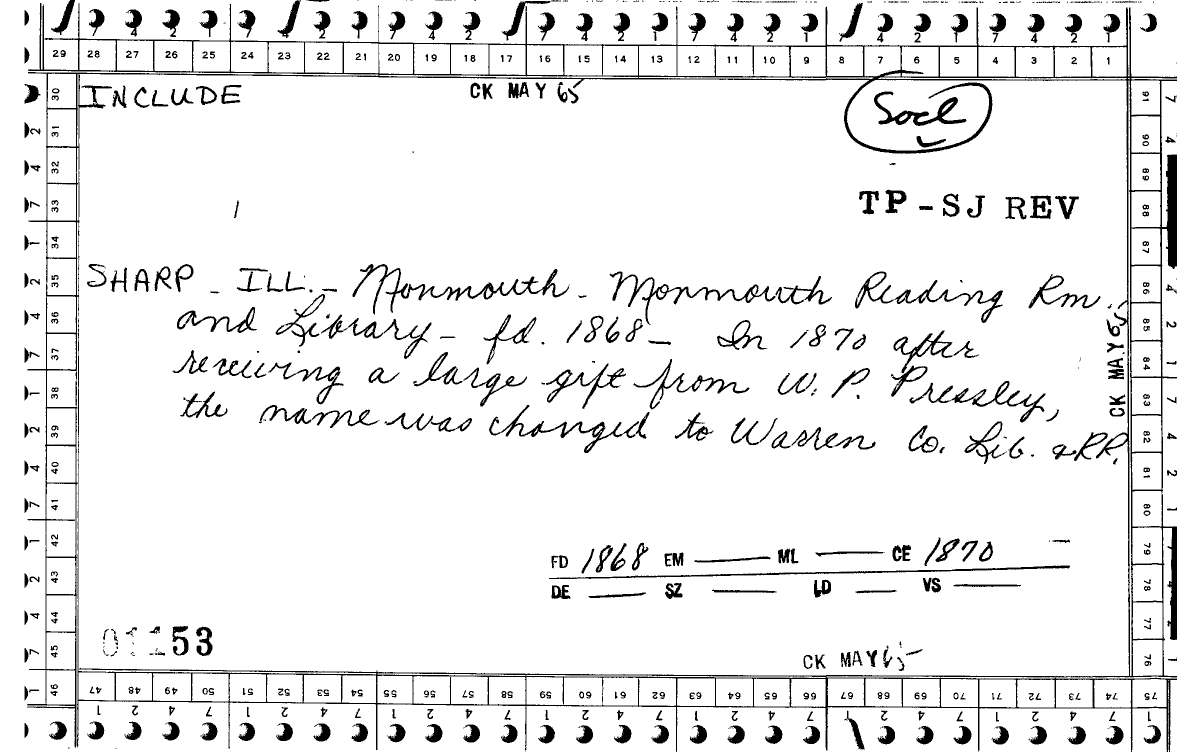 29 28 27 26 25 24 23 22 21 20 19 18 17 16 15 14 13 12 11 10 9 8 7 6 5 4 3 2 1
INCLUDE
CK MAY 65
Socl
TP-SJ REV
SHARP - ILL. - Monmouth - Monmouth Reading Rm.
and Library - fd. 1868 - In 1870 after
receiving a large gift from W. P. Pressley,
the name was changed to Warren Co. Lib. & RR.
CK MAY 65
FD 1868 EM ML CE 1870
DE SZ LD VS
01153
CK MAY 65
30 31 32 33 34 35 36 37 38 39 40 41 42 43 44 45 46
91 90 89 88 87 86 85 84 83 82 81 80 79 78 77 76
47 48 49 50 51 52 53 54 55 56 57 58 59 60 61 62 63 64 65 66 67 68 69 70 71 72 73 74 75